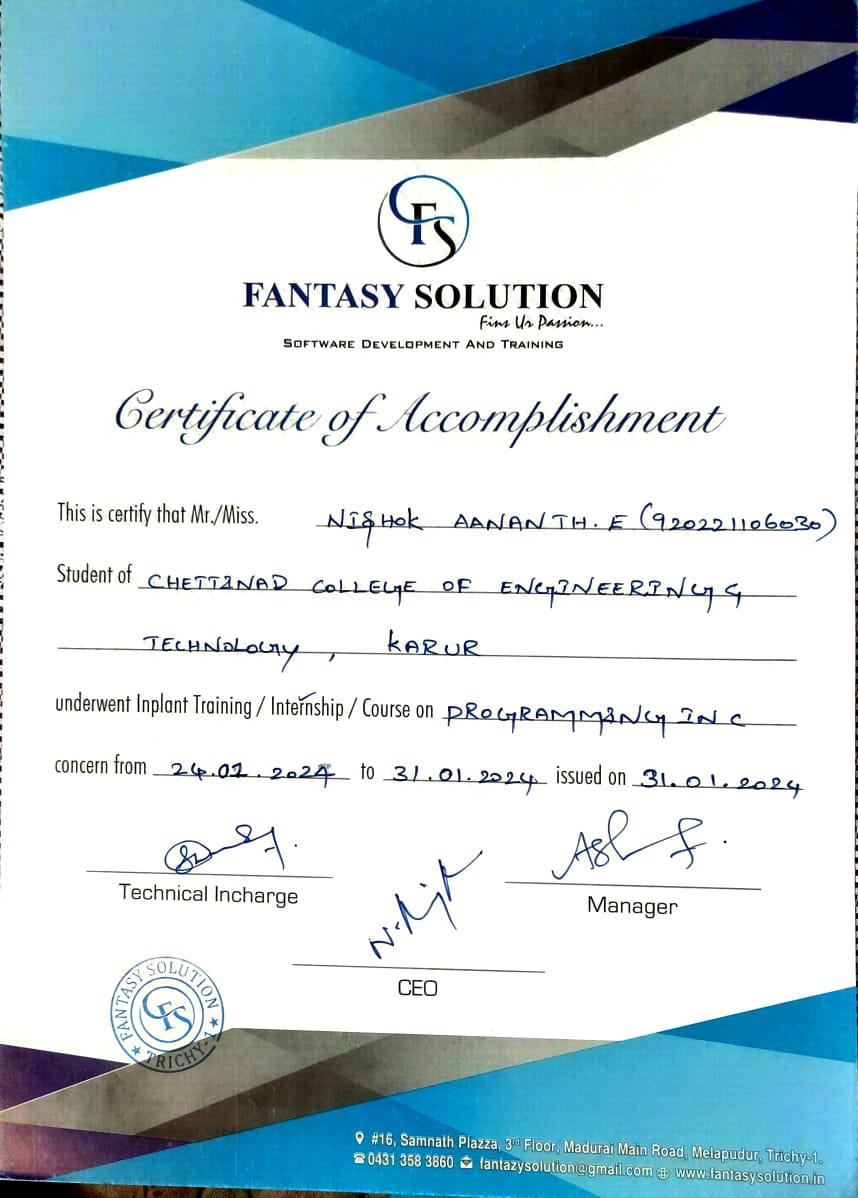 CFS
FANTASY SOLUTION
Fins Ur Passion...
SOFTWARE DEVELOPMENT AND TRAINING
Certificate of Accomplishment
This is certify that Mr./Miss. NISHOK AANANTH. E (920221106030)
Student of CHETTINAD COLLEGE OF ENGINEERING &
TECHNOLOGY, KARUR
underwent Inplant Training / Internship / Course on PROGRAMMING IN C
concern from 24.01.2024 to 31.01.2024 issued on 31.01.2024
Technical Incharge
Manager
CEO
FANTASY SOLUTION
CFS
TRICHY-1
#16, Samnath Plazza, 3rd Floor, Madurai Main Road, Melapudur, Trichy-1.
0431 358 3860 fantazysolution@gmail.com www.fantasysolution.in